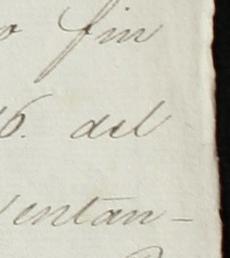 o fin
16. del
entan-